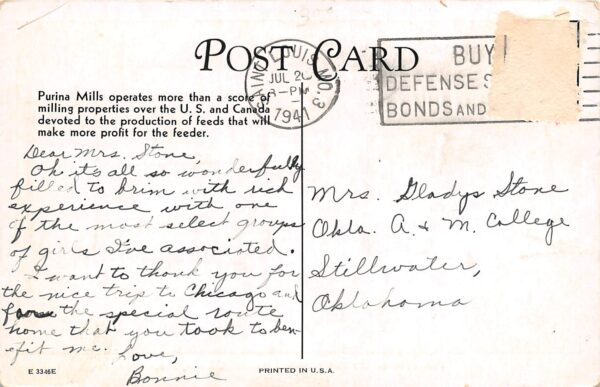 POST CARD
SAINT LOUIS, MO. 3
JUL 2
3-PM
1941
BUY
DEFENSE S
BONDS AND
Purina Mills operates more than a score of
milling properties over the U. S. and Canada
devoted to the production of feeds that will
make more profit for the feeder.
Dear Mrs. Stone,
Oh it's all so wonderfully
filled to brim with rich
experience with one
of the most select groups
of girls I've associated.
I want to thank you for
the nice trip to Chicago and
the special route
home that you took to ben-
efit me. Love,
Bonnie
Mrs. Gladys Stone
Okla. A. & M. College
Stillwater,
Oklahoma
E 3346E
PRINTED IN U.S.A.